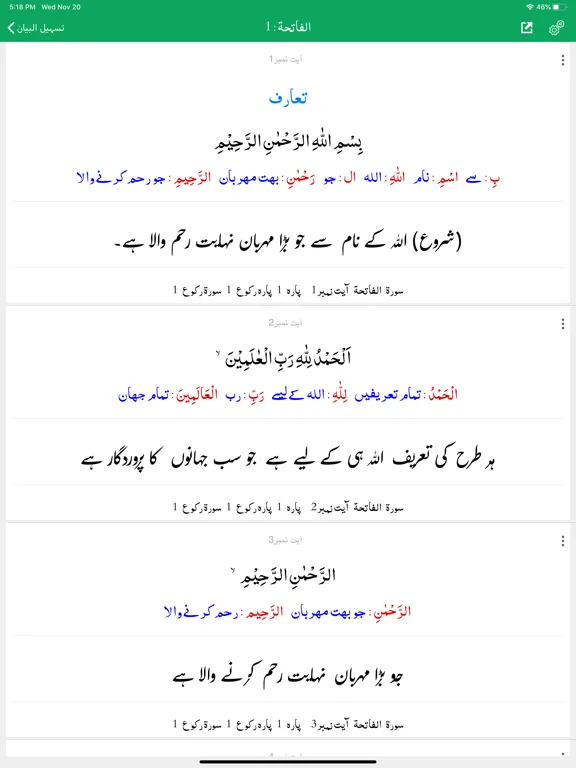 5:18 PM Wed Nov 20 46%
تسہیل البیان الفاتحة : 1
آیت نمبر1
تعارف
بِسْمِ اللهِ الرَّحْمٰنِ الرَّحِيْمِ
بِ: سے اسْمِ: نام اللهِ: الله ال: جو رَحْمٰنِ: بهت مهربان الرَّحِيْمِ: جو رحم کرنے والا
(شروع) اللہ کے نام سے جو بڑا مہربان نہایت رحم والا ہے۔
سورة الفاتحة آیت نمبر1 پارہ 1 پارہ رکوع 1 سورة رکوع 1
آیت نمبر2
اَلْحَمْدُ لِلّٰهِ رَبِّ الْعٰلَمِيْنَ ۙ
الْحَمْدُ: تمام تعریفیں لِلّٰهِ: الله کے لیے رَبِّ: رب الْعَالَمِيْنَ: تمام جهان
ہر طرح کی تعریف اللہ ہی کے لیے ہے جو سب جہانوں کا پروردگار ہے
سورة الفاتحة آیت نمبر2 پارہ 1 پارہ رکوع 1 سورة رکوع 1
آیت نمبر3
الرَّحْمٰنِ الرَّحِيْمِ ۙ
الرَّحْمٰنِ: جو بهت مهربان الرَّحِيْمِ: رحم کرنے والا
جو بڑا مہربان نہایت رحم کرنے والا ہے
سورة الفاتحة آیت نمبر3 پارہ 1 پارہ رکوع 1 سورة رکوع 1